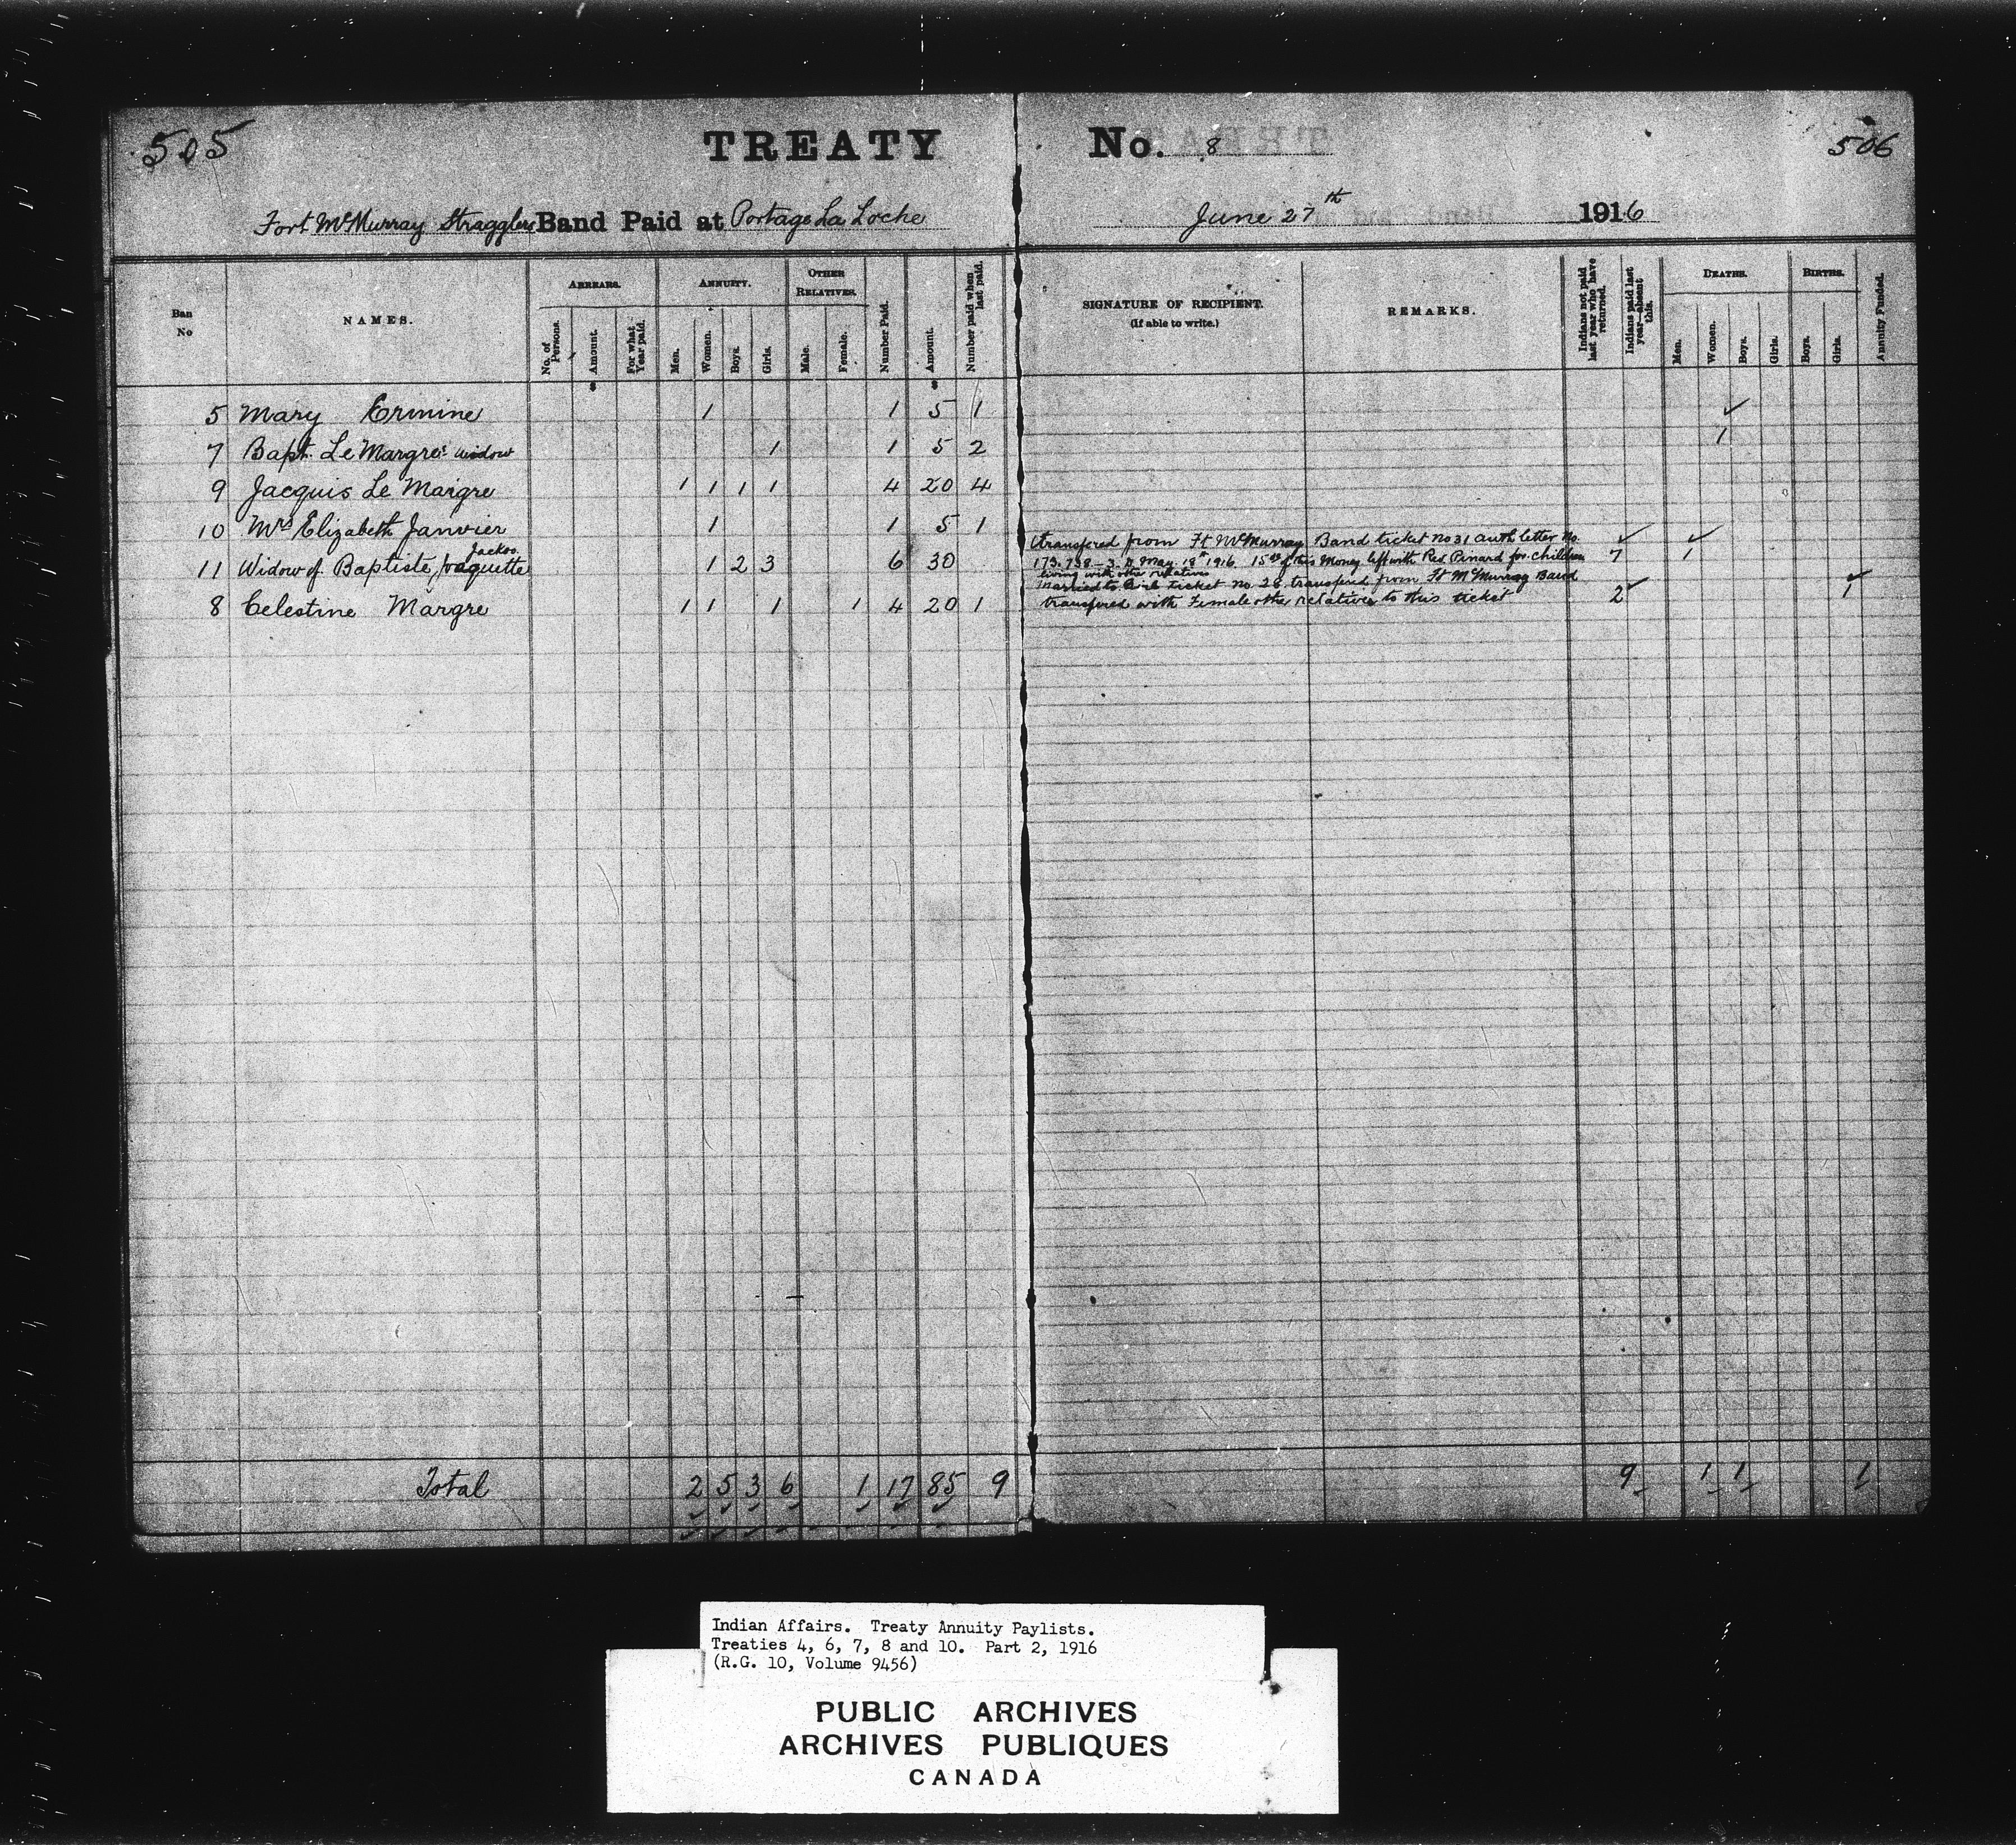 505
TREATY No. 8
506
Fort McMurray Stragglers Band Paid at Portage La Loche June 27th 1916
Ban No
NAMES.
ARREARS.
No. of Persons.
Amount.
For what Year paid.
ANNUITY.
Men.
Women.
Boys.
Girls.
OTHER RELATIVES.
Male.
Female.
Number Paid.
Amount.
Number paid when last paid.
SIGNATURE OF RECIPIENT.
(if able to write.)
REMARKS.
Indians not paid last year who have returned.
Indians paid last year—absent this.
DEATHS.
Men.
Women.
Boys.
Girls.
BIRTHS.
Boys.
Girls.
Annuity Funded.
5 Mary Ermine 1 1 5 1
7 Bapt. Le Margre's widow 1 1 5 2 1
9 Jacquis Le Maigre 1 1 1 1 4 20 4
10 Mrs Elizabeth Janvier 1 1 5 1
transfered from Ft McMurray Band ticket no 31 auth letter No.
Jackso.
11 Widow of Baptiste, raquette 1 2 3 6 30 173.738-3. D. May. 18th 1916 15 of this Money left with Rev Pinard for children 7 1
living with other relatives
married to ticket no. 28. transferred from Ft McMurray Band
8 Celestine Margre 1 1 1 1 4 20 1 transfered with Female other relatives to this ticket 2 1
Total 2 5 3 6 1 17 85 9 9 1 1 1
Indian Affairs. Treaty Annuity Paylists.
Treaties 4, 6, 7, 8 and 10. Part 2, 1916
(R.G. 10, Volume 9456)
PUBLIC ARCHIVES
ARCHIVES PUBLIQUES
CANADA